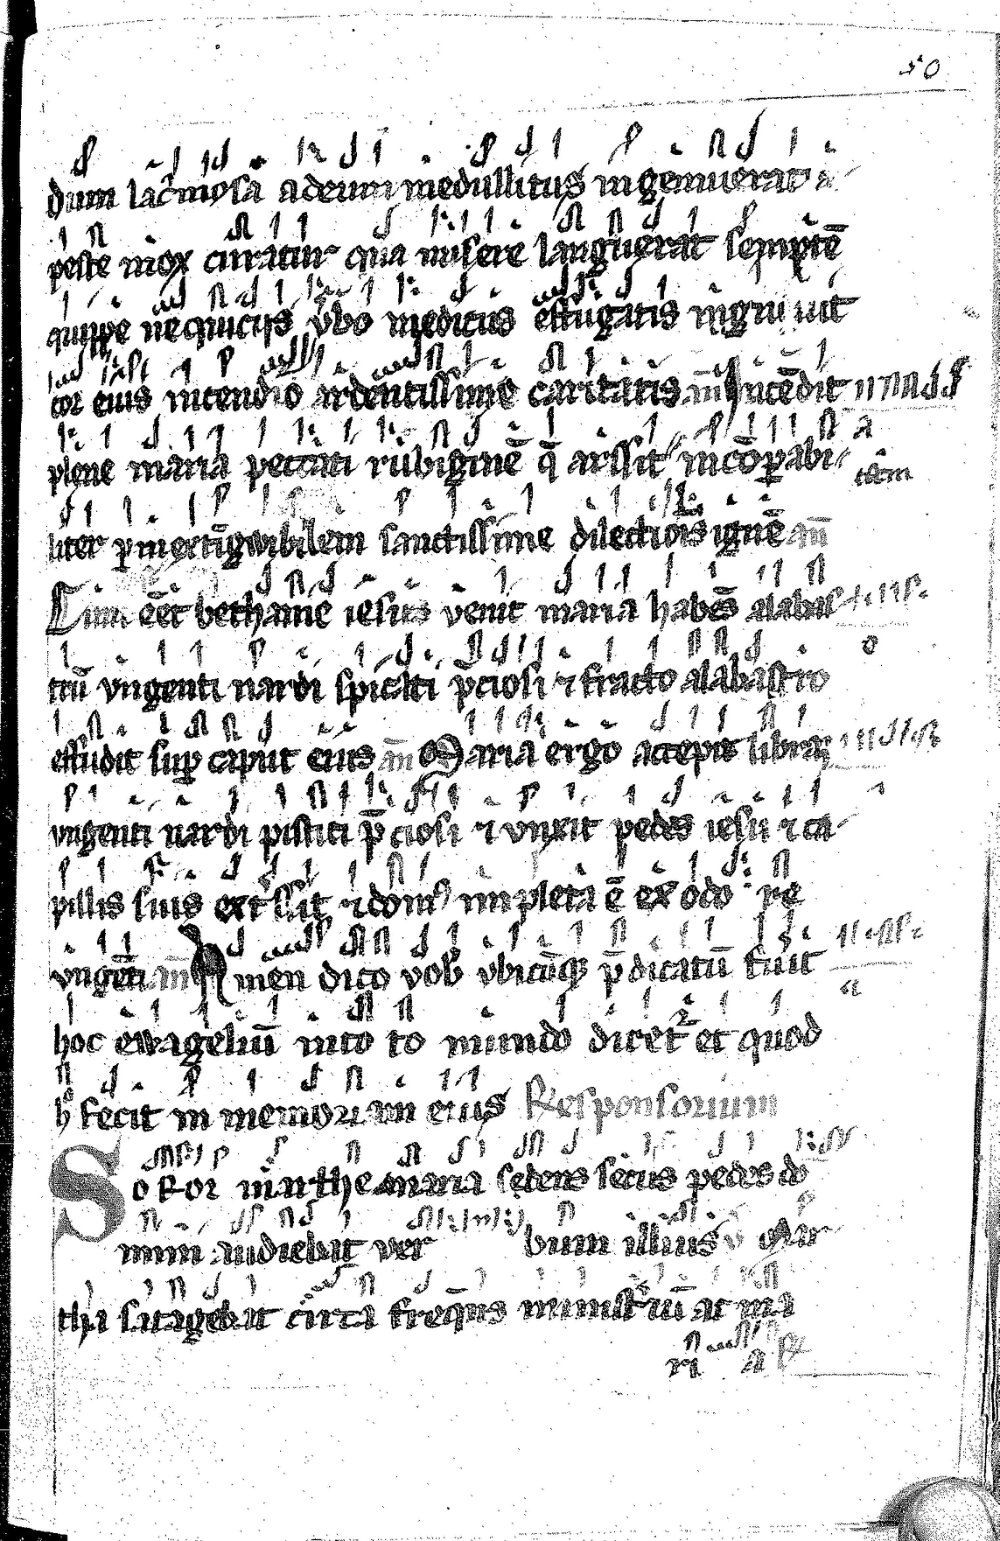 50
dum lac̄mosa adeum medullitus ingemuerat a
peste mox curatur qua misere languerat septē
quippe nequicijs v̄bo medicus effugatis ingniuit
cor eius incendio ardentissime caritatis an̄ Incēdit
plene maria peccati rubiginē q̄ arsit incōꝑabi
liter ꝑ inextīgwibilem sanctissime dilectiōis ignē an̄
Cum eēt bethanie iesus venit maria habēs alabas
trū vngenti nardi spicati p̄ciosi ⁊ fracto alabastro
effudit suꝑ caput eius an̄ Maria ergo accepit libraȝ
vngenti nardi pistici p̄ciosi ⁊ vnxit pedes iesu ⁊ ca
pillis suis ext̄sit ⁊ domꝰ impleta ē ex odo re
vngēti an̄ Amen dico vob vbicūqȝ p̄dicatū fuit
hoc ewāgeliū in to to mundo dicet² et quod
h̊ fecit in memoriam eius Responsorium
Soror marthe maria sedens secus pedes do
mini audiebat ver bum illius v̊ Mar
tha satagebat circa freq̄ns minist̄iū at ma
ri a R̸